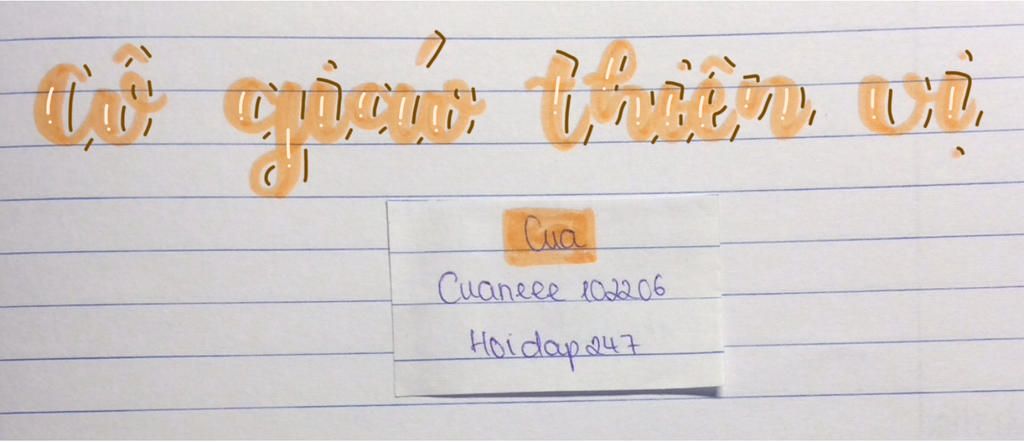 Cô giáo thiên vị
Cua
Cuaneee 102206
Hoidap247